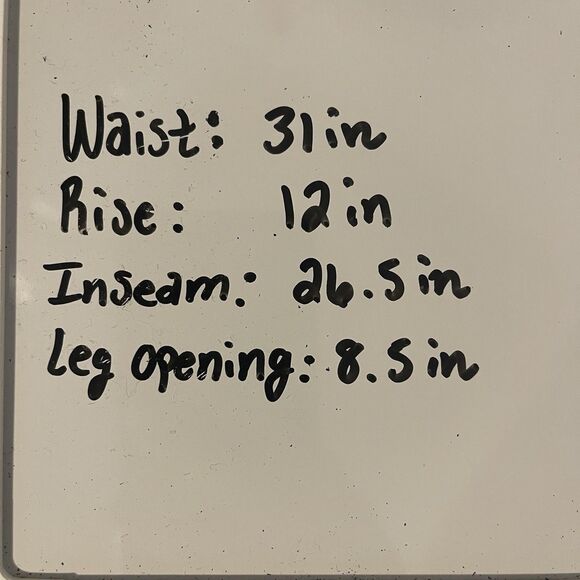 Waist: 31in
Rise: 12in
Inseam: 26.5in
Leg opening: 8.5in